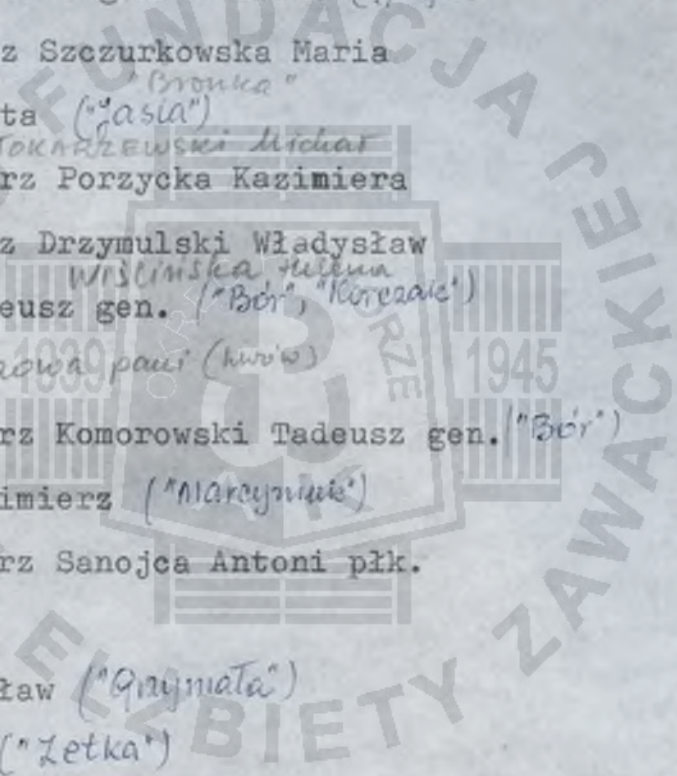 z Szczurkowska Maria
"Bronka"
ta ("Jasia")
TOKARZEWSKI Michał
rz Porzycka Kazimiera
z Drzymulski Władysław
WIŚCIŃSKA Helena
eusz gen. ("Bór", "Korczak")
zowa pani (Lwów)
rz Komorowski Tadeusz gen. ("Bór")
imierz ("Marcyniuk")
rz Sanojca Antoni płk.
ław ("Grzymała")
("Zetka")
FUNDACJA JEJ
ELŻBIETY ZAWACKIEJ
1939
1945